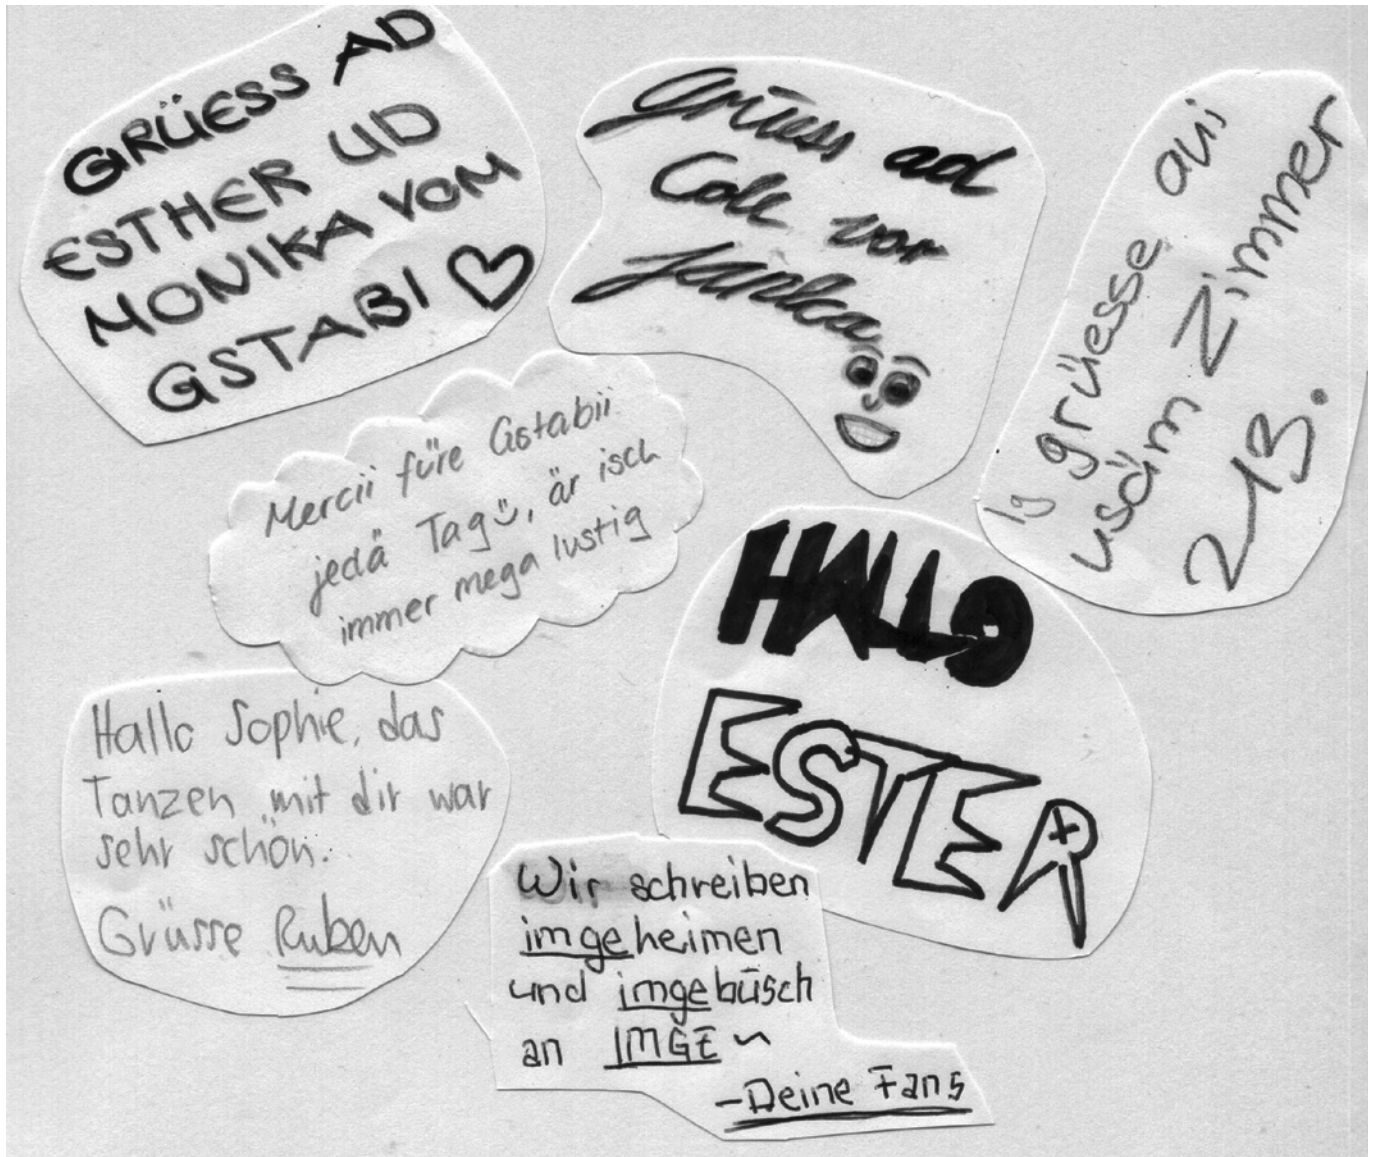 GRÜESS AD
ESTHER UD
MONIKA VOM
GSTABI ♡
Grüess ad
Coll vor
Janka
lg grüesse aui
usäm Zimmer
213.
Mercii füre Gstabii
jedä Tag ü, är isch
immer mega lustig
HALLO
ESTER
Hallo Sophie, das
Tanzen mit dir war
sehr schön.
Grüsse Ruben
Wir schreiben
imgeheimen
und imgebüsch
an IMGE ~
-Deine Fans